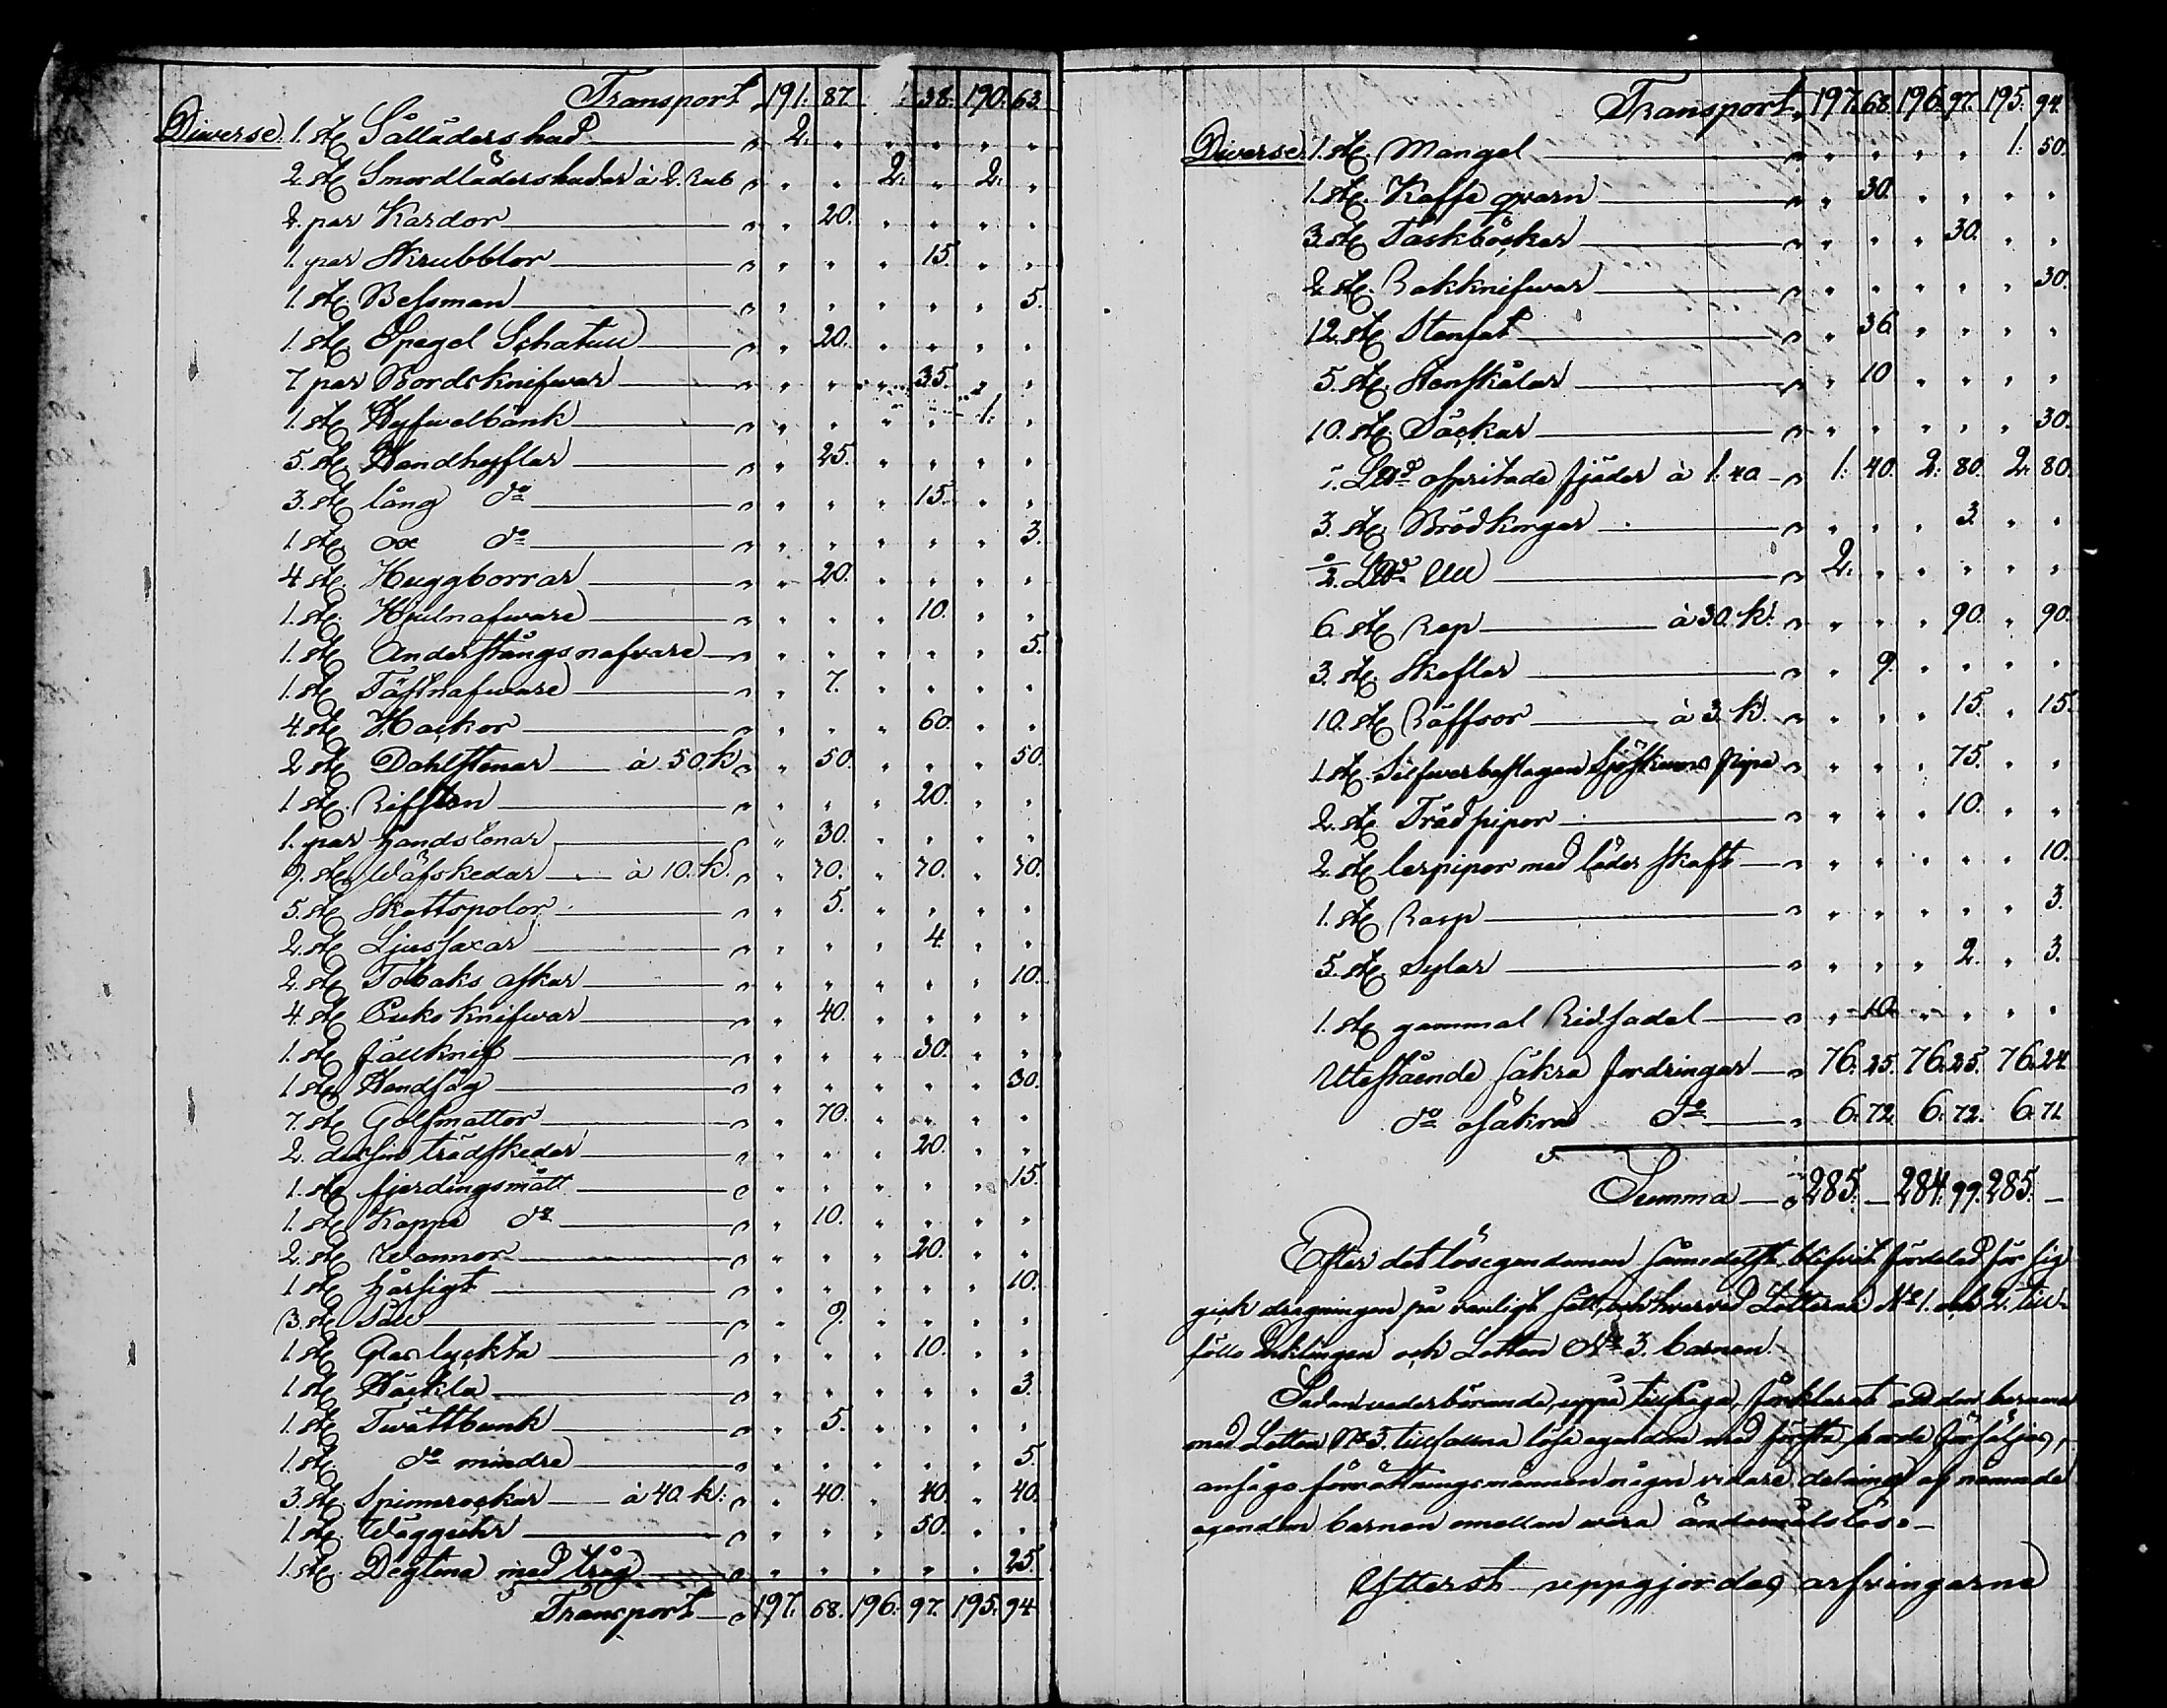 Transport 191. 87. 38. 190. 63.
Diverse. 1. st. Sålläders hud " 2. " " " " "
2. st. Smordläders hudar à 2. Rub " " " 2. " 2. "
2. par Kardor " " 20. " " " "
1. par Skrubblor " " " " 15. " "
1. st. Bessman " " " " " " 5.
1. st. Spegel Schatull " " 20. " " " "
7 par Bordsknifwar " " " " 35. " "
1. st. Hyfwelbänk " " " " " 1. "
5. st. Handhyflar " " 25. " " " "
3. st. lång do " " " " 15. " "
1. st. ox do " " " " " " 3.
4 st. Huggborrar " " 20. " " " "
1. st. Hjulnafware " " " " 10. " "
1. st. Anderstångsnafvare " " " " " " 5.
1. st. Tästnafware " " 7. " " " "
4. st. Hackor " " " " 60. " "
2 st. Dahlstenar à 50. k " " 50. " " " 50.
1 st. Rifsten " " " " 20. " "
1. par handstenar " " 30. " " " "
9. st. Wäfskedar à 10. k. " " 30. " 30. " 30.
5. st. Skottspolor " " 5. " " " "
2. st. Ljussaxar " " " " 4. " "
2. st. Tobaks askar " " " " " " 10.
4. st. Puko knifwar " " 40. " " " "
1. st. fällknif " " " " 30. " "
1 st. Handsåg " " " " " " 30.
7. st. Golfmattor " " 70. " " " "
2. dussin trädskedar " " " " 20. " "
1. st. fjerdingsmått " " " " " " 15.
1. st. Kappe do " " 10. " " " "
2. st. Wannor " " " " 20. " "
1 st. hårsigt " " " " " " 10.
3. st. Såll " " 9. " " " "
1. st. Glaslyckta " " " " 10. " "
1 st. Häckla " " " " " " 3.
1. st. Twättbunk " " 5. " " " "
1. st. do mindre " " " " " " 5.
3. st. Spinnrockar à 40. k: " " 40. " 40. " 40.
1. st. Wägguhr " " " " 50. " "
1. st. Degtina med tråg " " " " " " 25.
Transport " 197. 68. 196. 97. 195. 94
Transport. 197. 68. 196. 97. 195. 94.
Diverse 1. st. Mangel " " " " " 1. 50.
1. st. Kaffe qvarn " " 30. " " " "
3. st. Täskböcker " " " " 30. " "
2 st. Rakknifwar " " " " " " 30.
12. st. Stenfat " " 36 " " " "
5. st. Stenskålar " " 10 " " " "
10. st. Säckar " " " " " " 30.
5. Lud ospritade fjäder à 1.40 " 1. 40. 2. 80. 2. 80.
3. st. Brödkorgar " " " " 3. " "
Lud Ull " 2. " " " " "
6. st. Rep à 30. k: " " " " 90. " 90.
3. st. Skeflar " " 9. " " " "
10. st. Räffsor à 3. k. " " " " 15. " 15.
1. st. Silfwerbeslagen Sjöskums Pipa " " " " 75. " "
2. st. Trädpipor " " " " 10. " "
2. st. lerpipor med läder skaft " " " " " " 10.
1. st. Rasp " " " " " " 3.
5. st. Sylar " " " " 2. " 3.
1. st. gammal Ridsadel " " 10 " " " "
Utestående säkra fordringar " 76. 25. 76. 25. 76. 24
do osäkra do " 6. 72. 6. 72. 6. 71
Summa " 285. — 284. 99. 285. —
Efter det lösegendomen sånedelst blifvit fördelad för sig
gick dragningen på vanligt sätt, och hvarvid Lotterne No 1. och 2. till-
föllo Enklingen och Lotten No 3. barnen.
Sedan vederbörande, uppå tillfrågan, förklarat att den barnen
med Lotten No 3. tillfallna lösa egendom med första borde försäljas,
ansågo förrättningsmännen någon vidare delning af nämnde
egendom barnen emellan wara ändamålslös. —
Ytterst uppgjordes arfvingarne